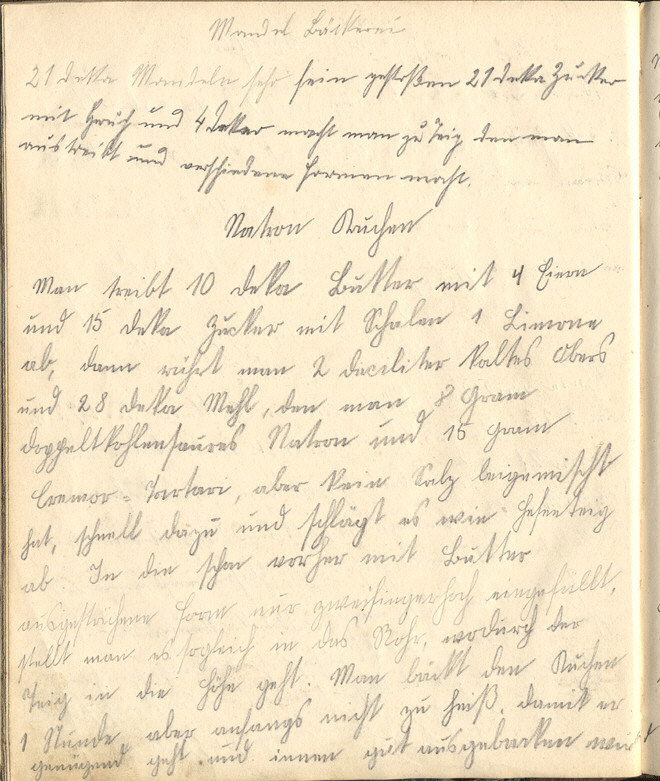 Mandel Bäckerei
21 Deka Mandeln sehr fein gestoßen 21 Deka Zucker
mit und 4 Dotter macht man zu Teig den man
austreibt und verschiedene Formen macht.
Natron Kuchen
Man treibt 10 Deka Butter mit 4 Eiern
und 15 Deka Zucker mit Schalen 1 Limone
ab, dann rührt man 2 Deciliter kaltes Obers
und 28 Deka Mehl, den man 8 Gram
doppeltkohlensaures Natron und 15 Gram
Cremor-Tartari, aber kein Salz beigemischt
hat, schnell dazu und schlägt es wie Hefenteig
ab. In den schon vorher mit Butter
ausgestrichene Form nur zweifingerhoch eingefüllt,
stellt man es sogleich in das Rohr, wodurch der
Teig in die Höhe geht. Man bäckt den Kuchen
1 Stunde aber anfangs nicht zu heiß, damit er
genügend geht und innen gut ausgebacken wird